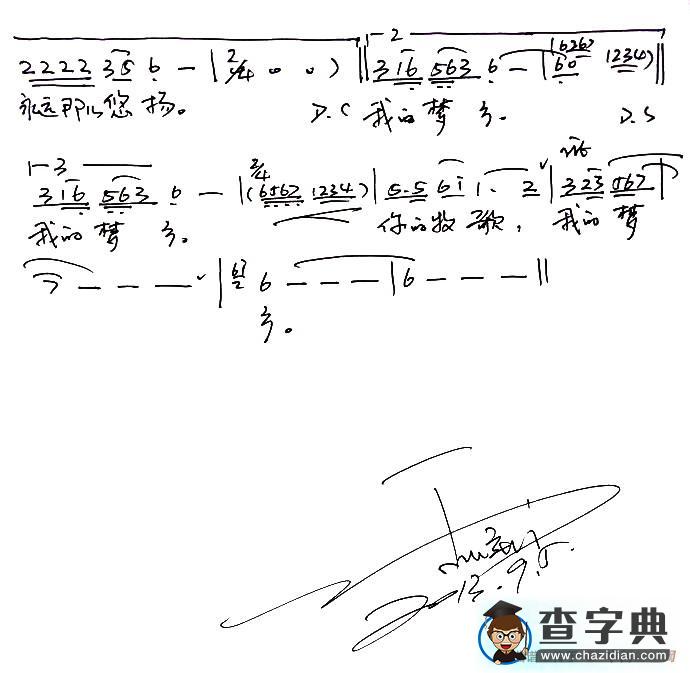 2 2 2 2 3 5 6 — | 2/4 0 0 ) ‖ 2 3 1 6 5 6 3 6 — | ( 6 0 1 2 3 4 ) ‖
永远 悠扬。 D.C 我的梦乡。 D.S
3 3 1 6 5 6 3 6 — | 3/4 ( 6 5 6 7 1 2 3 4 ) | 5 . 5 6 1 1 . 2 | 3 2 3 5 6 7 |
我的梦乡。 你的牧歌, 我的梦
7 — — — | 6 — — — | 6 — — — ‖
乡。
查字典
www.chazidian.com